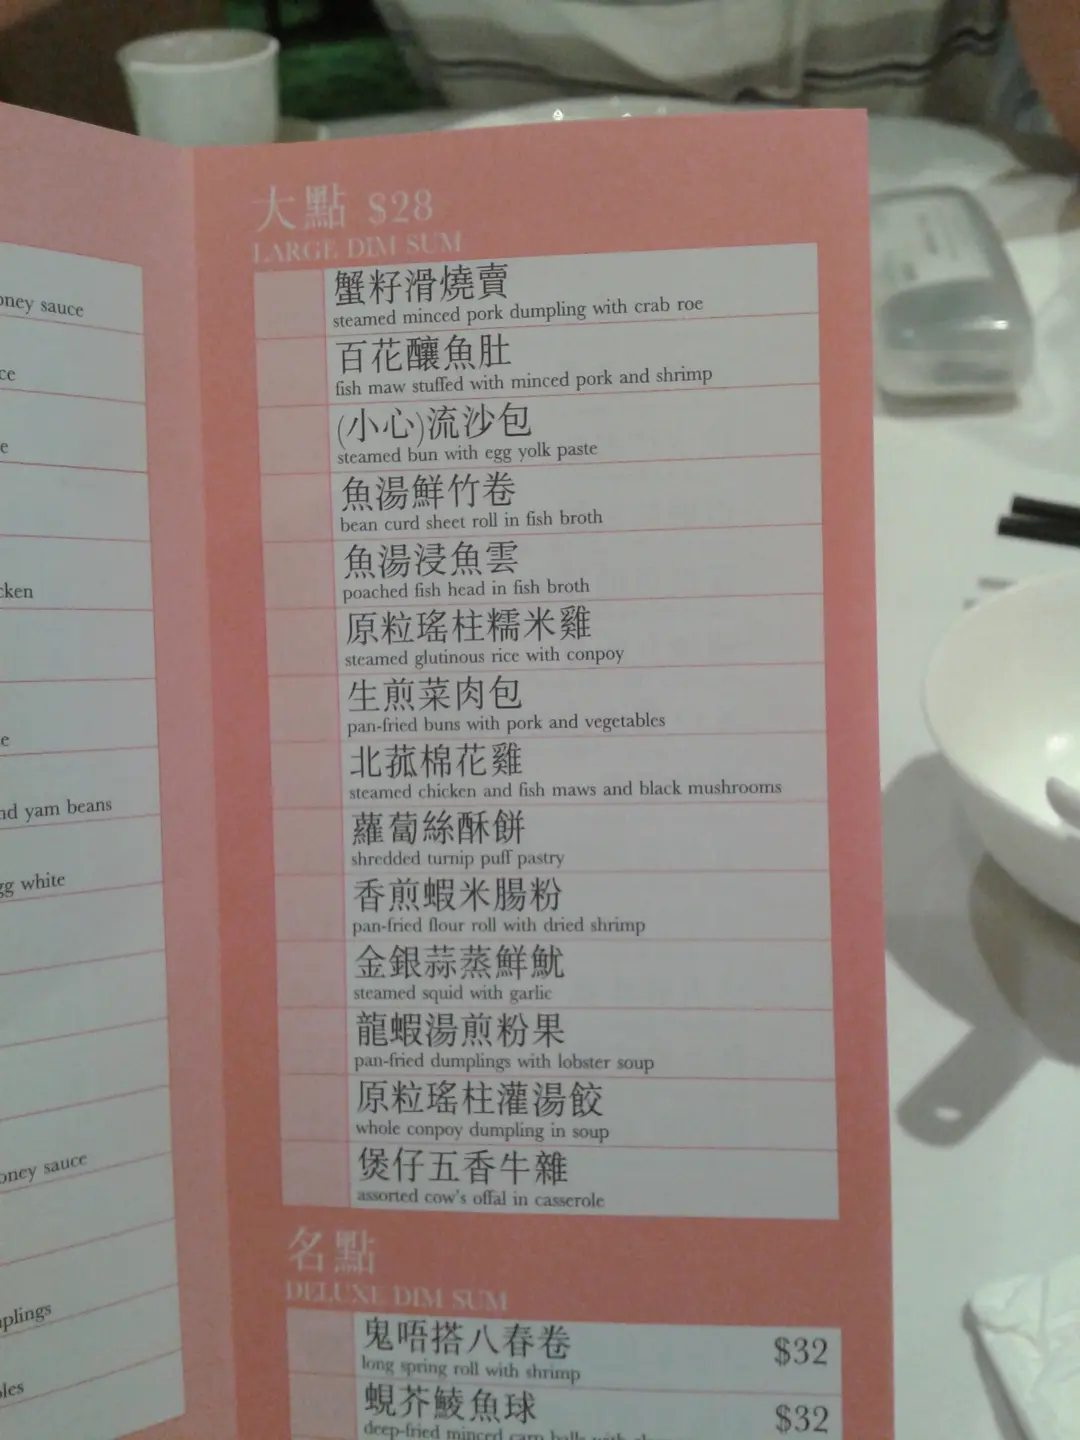 oney sauce
ce
e
cken
e
nd yam beans
gg white
oney sauce
mplings
les
大點 $28
LARGE DIM SUM
蟹籽滑燒賣
steamed minced pork dumpling with crab roe
百花釀魚肚
fish maw stuffed with minced pork and shrimp
(小心)流沙包
steamed bun with egg yolk paste
魚湯鮮竹卷
bean curd sheet roll in fish broth
魚湯浸魚雲
poached fish head in fish broth
原粒瑤柱糯米雞
steamed glutinous rice with conpoy
生煎菜肉包
pan-fried buns with pork and vegetables
北菰棉花雞
steamed chicken and fish maws and black mushrooms
蘿蔔絲酥餅
shredded turnip puff pastry
香煎蝦米腸粉
pan-fried flour roll with dried shrimp
金銀蒜蒸鮮魷
steamed squid with garlic
龍蝦湯煎粉果
pan-fried dumplings with lobster soup
原粒瑤柱灌湯餃
whole conpoy dumpling in soup
煲仔五香牛雜
assorted cow's offal in casserole
名點
DELUXE DIM SUM
鬼唔搭八春卷 $32
long spring roll with shrimp
蜆芥鯪魚球 $32
deep-fried minced carp balls with